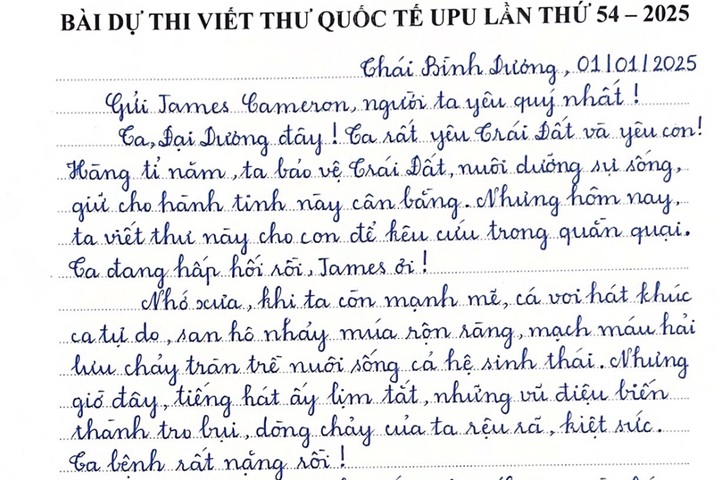 BÀI DỰ THI VIẾT THƯ QUỐC TẾ UPU LẦN THỨ 54 – 2025
Thái Bình Dương, 01/01/2025
Gửi James Cameron, người ta yêu quý nhất!
Ta, Đại Dương đây! Ta rất yêu Trái Đất và yêu con!
Hàng tỉ năm, ta bảo vệ Trái Đất, nuôi dưỡng sự sống,
giữ cho hành tinh này cân bằng. Nhưng hôm nay,
ta viết thư này cho con để kêu cứu trong quằn quại.
Ta đang hấp hối rồi, James ơi!
Nhớ xưa, khi ta còn mạnh mẽ, cá voi hát khúc
ca tự do, san hô nhảy múa rộn ràng, mạch máu hải
lưu chảy tràn trề nuôi sống cả hệ sinh thái. Nhưng
giờ đây, tiếng hát ấy lịm tắt, những vũ điệu biến
thành tro bụi, dòng chảy của ta rệu rã, kiệt sức.
Ta bệnh rất nặng rồi!